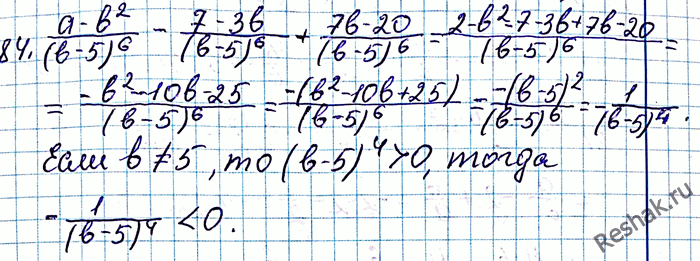 84. (a-b²)/(b-5)⁶ - (7-3b)/(b-5)⁶ + (7b-20)/(b-5)⁶ = (2-b²-7-3b+7b-20)/(b-5)⁶ =
= (-b²-10b-25)/(b-5)⁶ = (-(b²-10b+25))/(b-5)⁶ = (-(b-5)²)/(b-5)⁶ = -1/(b-5)⁴.
Если b≠5, то (b-5)⁴>0, тогда
-1/(b-5)⁴ <0.
Reshak.ru